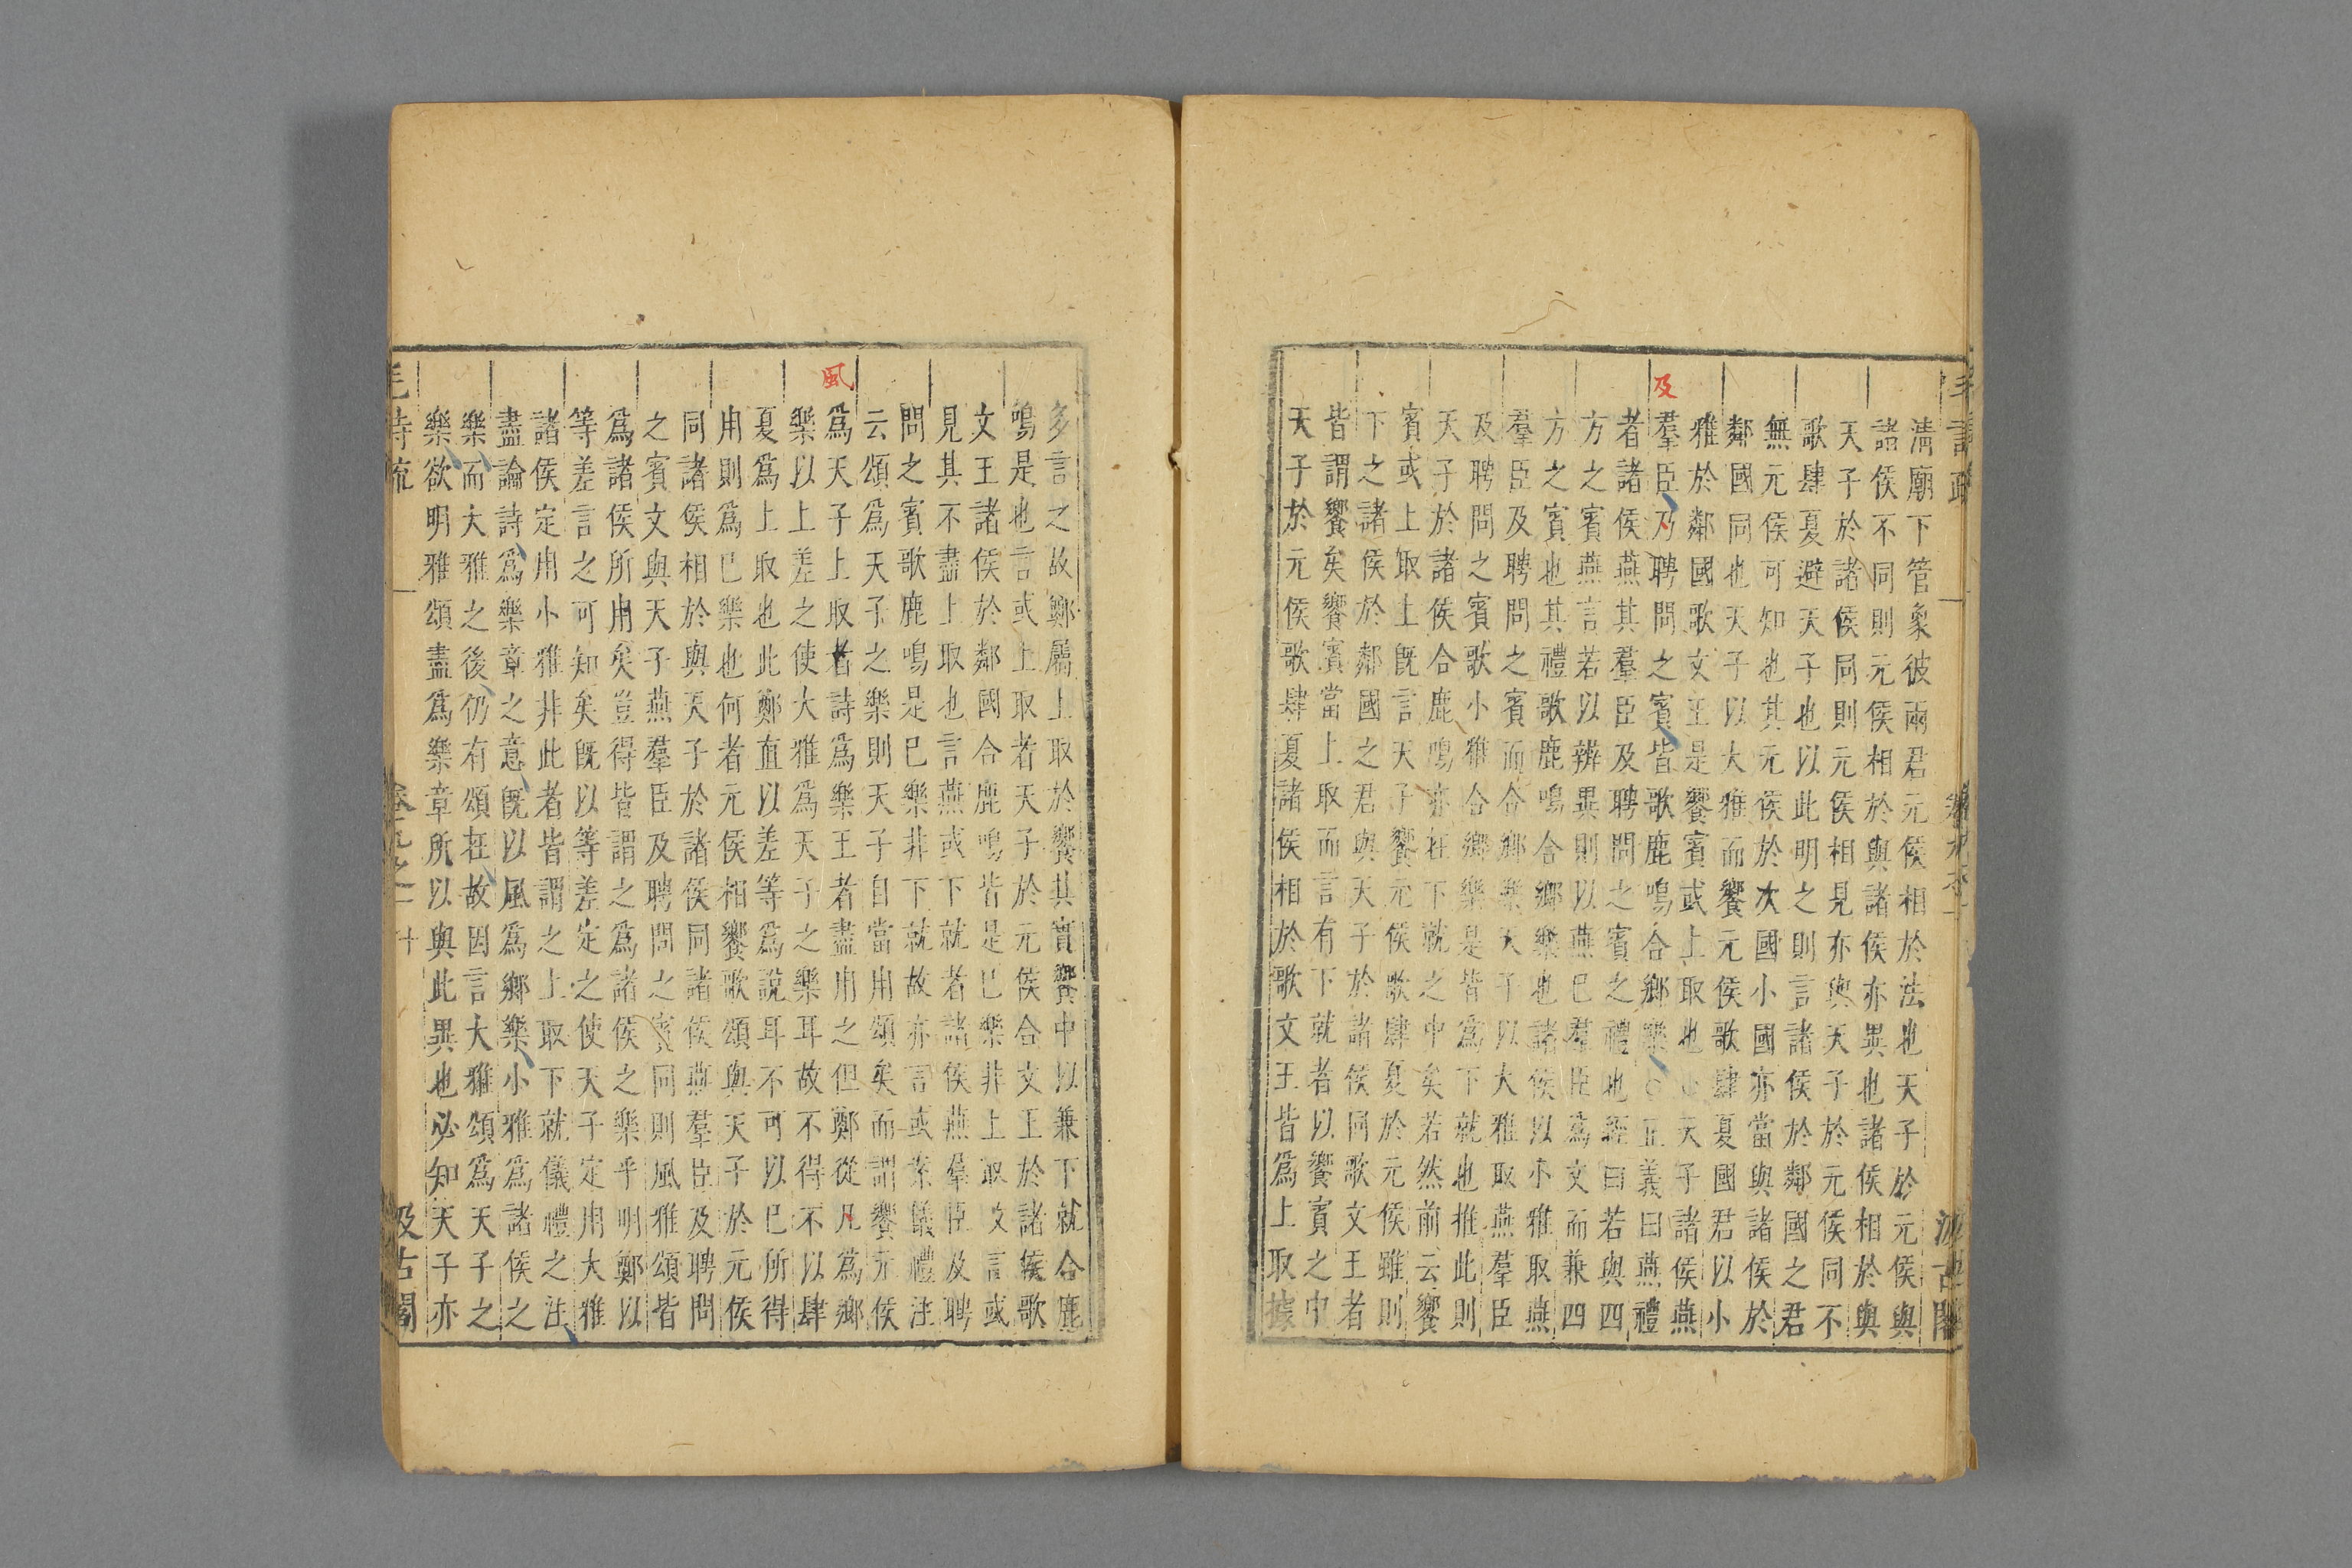 清廟下管象彼兩君元侯相於法也天子於元侯與
諸侯不同則元侯相於與諸侯亦異也諸侯相於與
天子於諸侯同則元侯相見亦與天子於元侯同不
歌肆夏避天子也以此明之則言諸侯於鄰國之君
無元侯可知也其元侯於次國小國亦當與諸侯於
鄰國同也天子以大雅而饗元侯歌肆夏國君以小
雅於鄰國歌文王是饗賓或上取也天子諸侯燕
羣臣乃聘問之賓皆歌鹿鳴合鄉樂○正義曰燕禮
者諸侯燕其羣臣及聘問之賓之禮也經曰若與四
方之賓燕言若以辨異則以燕已羣臣爲文而兼四
方之賓也其禮歌鹿鳴合鄉樂也諸侯以小雅取燕
羣臣及聘問之賓而合鄉樂天子以大雅取燕羣臣
及聘問之賓歌小雅合鄉樂是皆爲下就也推此則
天子於諸侯合鹿鳴亦在下就之中矣若然前云饗
賓或上取上旣言天子饗元侯歌肆夏於元侯雖則
下之諸侯於鄰國之君與天子於諸侯同歌文王者
皆謂饗矣饗賓當上取而言有下就者以饗賓之中
天子於元侯歌肆夏諸侯相於歌文王皆爲上取據
多言之故鄭屬上取於饗其實饗中以兼下就合鹿
鳴是也言或上取者天子於元侯合文王於諸侯歌
文王諸侯於鄰國合鹿鳴皆是已樂非上取故言或
見其不盡上取也言燕或下就者諸侯燕羣臣及聘
問之賓歌鹿鳴是已樂非下就故亦言或案儀禮注
云頌爲天子之樂則天子自當用頌矣而謂饗元侯
爲天子上取者詩爲樂王者盡用之但鄭從凡爲鄉
樂以上差之使大雅爲天子之樂耳故不得不以肆
夏爲上取也此鄭直以差等爲說耳不可以已所得
用則爲已樂也何者元侯相饗歌頌與天子於元侯
同諸侯相於與天子於諸侯同諸侯燕羣臣及聘問
之賓文與天子燕羣臣及聘問之賓同則風雅頌皆
爲諸侯所用矣豈得皆謂之爲諸侯之樂乎明鄭以
等差言之可知矣旣以等差定之使天子定用大雅
諸侯定用小雅非此者皆謂之上取下就儀禮之注
盡論詩爲樂章之意旣以風爲鄉樂小雅爲諸侯之
樂而大雅之後仍有頌在故因言大雅頌爲天子之
樂欲明雅頌盡爲樂章所以與此異也必知天子亦